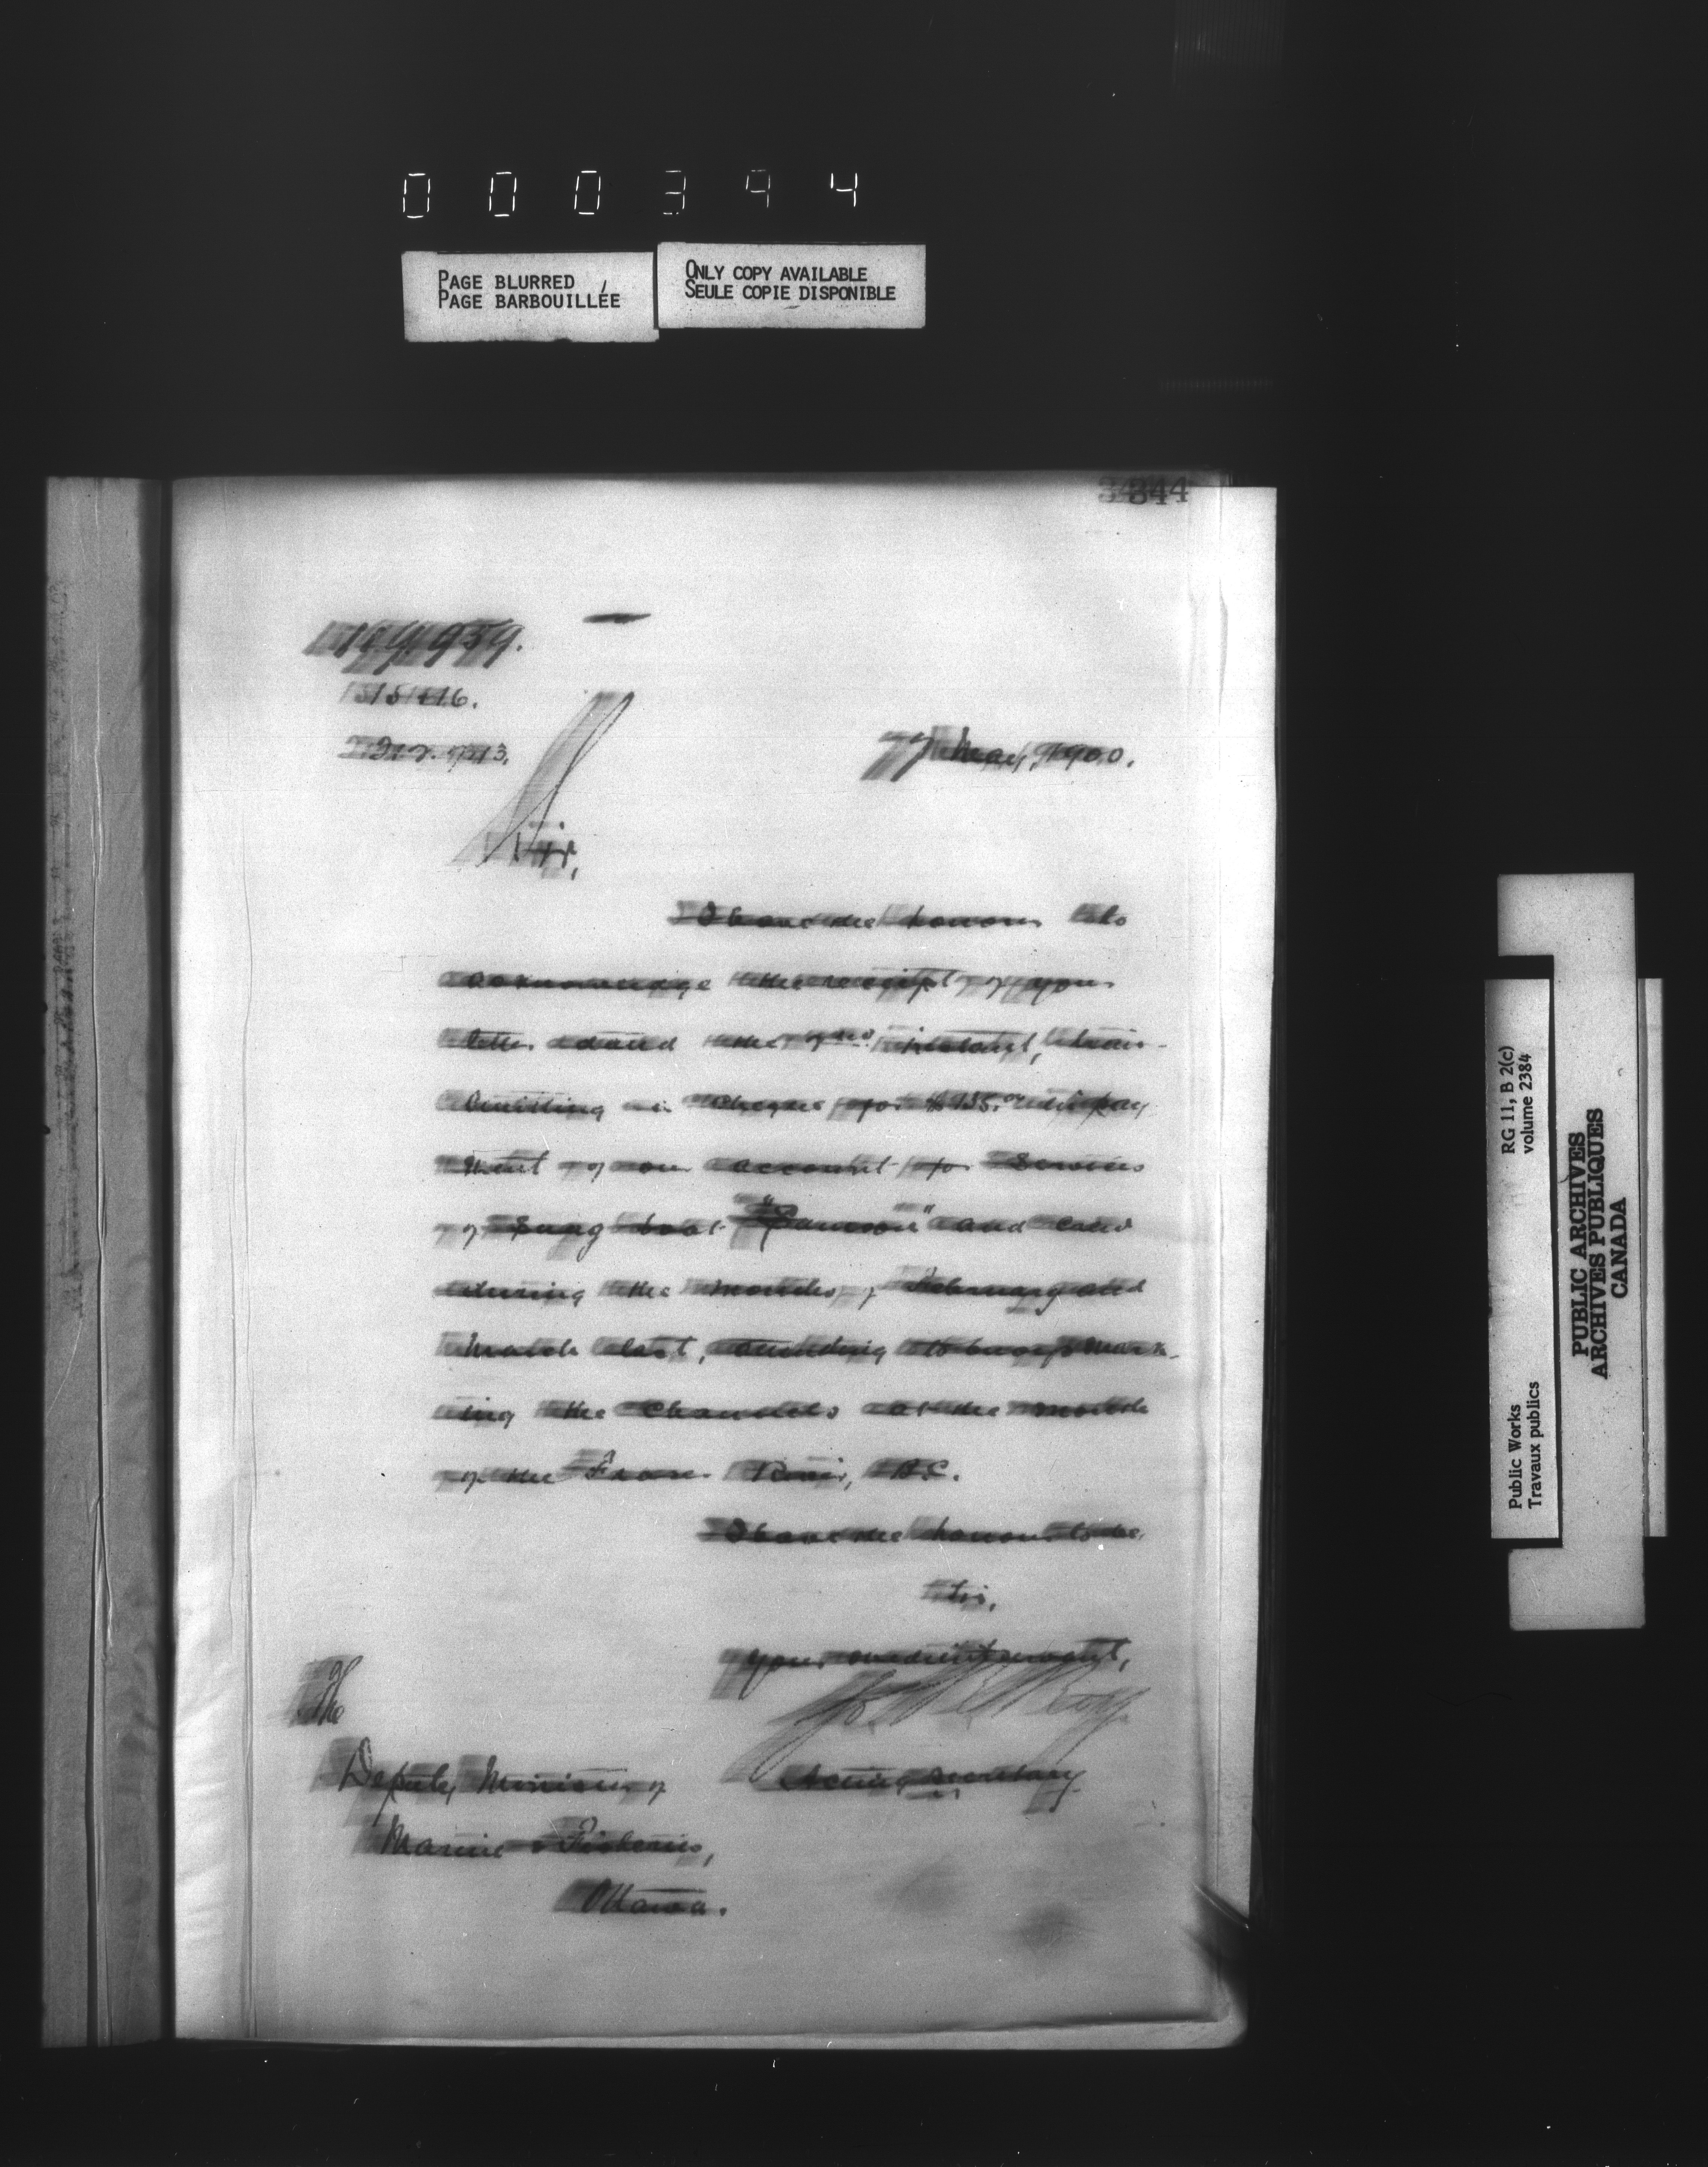 000394
PAGE BLURRED
PAGE BARBOUILLÉE
ONLY COPY AVAILABLE
SEULE COPIE DISPONIBLE
344
7 May, 1900.
Sir,
I have the honour to
acknowledge the receipt of your
letter dated the instant, trans-
mitting a cheque for in pay
ment of our account for services
of Snag boat "Samson" and crew
during the months of February and
March last, attending to buoys mark-
ing the channels at the mouth
of the Fraser River, B.C.
I have the honour to be,
Sir,
Your obedient servant,
Roy
Acting Secretary
The
Deputy Minister of
Marine & Fisheries,
Ottawa.
RG 11, B 2(c)
volume 2384
Public Works
Travaux publics
PUBLIC ARCHIVES
ARCHIVES PUBLIQUES
CANADA